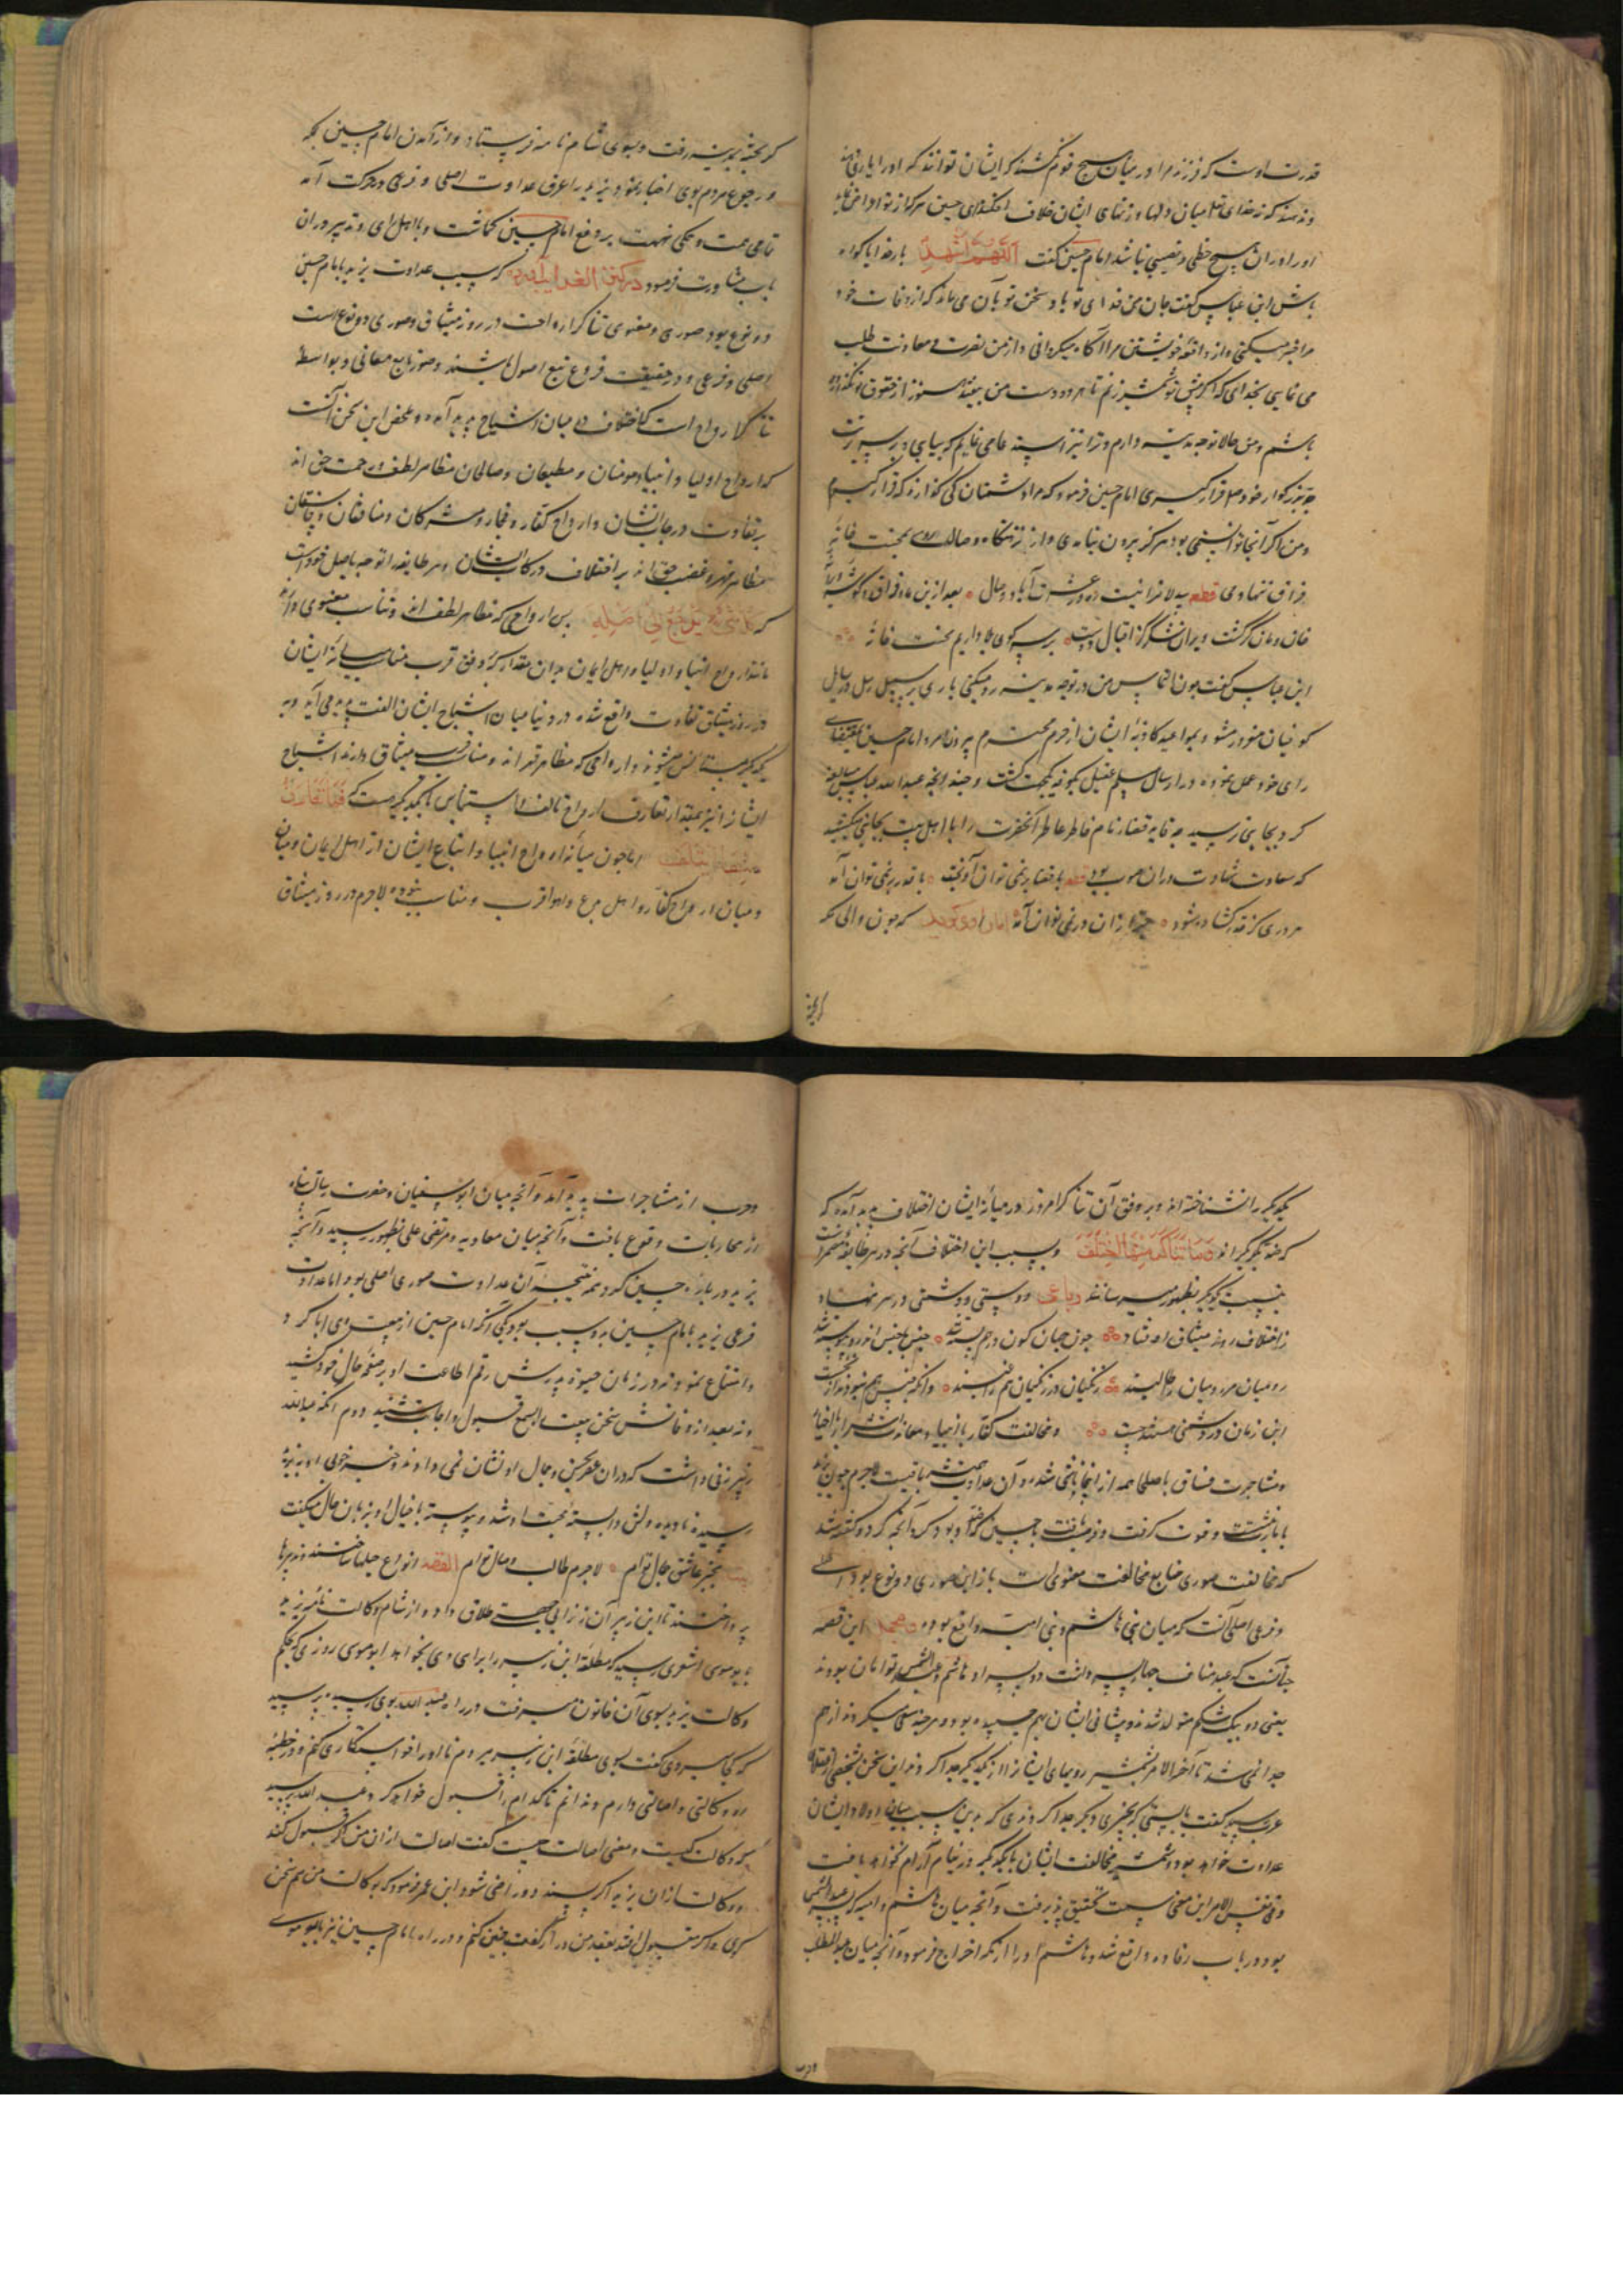 قدرت اوست که فرزند مرا در میان هیچ قوم نکشند که ایشان توانند که او را یاری دهند
و نه دهند که نه خدای تعالی میان دلها و زبانهای ایشان خلاف افکند ای حسین هرکه از تو
او را در آن هیچ حظی و نصیبی نباشد امام حسین گفت اللهم اشهد بار خدایا گواه
باش ابن عباس گفت جان من فدای تو باد سخن تو بآن می ماند که از وفات خود
مرا خبر میکنی و از واقعه خویشتن مرا آگاه میگردانی و از من نصرت و معاونت طلب
می نمایی بخدای که اگر پیش تو شمشیر زنم تا هر دو دست من بیفتد هنوز از حقوق تو نگذارده
باشم و من حالا توجه مدینه دارم و ترا نیز استدعا می نمایم که بیایی و بر سر تربت
جد بزرگوار خود قرار گیری امام حسین فرمود که مرا دشمنان کی گذارند که قرار گیرم
و من اگر آنجا توانستمی بود هرگز بیرون نیامدمی و از نزهتگاه وصال روی بمحنت خانه
فراق ننهادمی قطعه عشرت آباد وصال ه بعد ازین ماه فراق و گوشه ویرانه
خان و مان گر گشت ویران شکر کز اقبال دوست ه بر سر کوی بلا داریم محنت خانه
ابن عباس گفت چون التماس من در توجه مدینه رد میکنی باری برسل و رسایل
کوفیان مغرور مشو و بمواعید کاذبه ایشان از حرم محترم بیرون مرو امام حسین بمقتضای
رای خود عمل نموده در ارسال مسلم عقیل بکوفه یکجهت گشت و چندانچه عبدالله عباس مبالغه
کرد بجایی نرسید چه قاید قضا زمام خاطر عاطر آنحضرت را با اهل بیت بجانبی میکشید
که سعادت شهادت در آن صوب بود قطعه با قضا بر نمی توان آویخت ه با قدر بر نمی توان آمد
هر دری کز قدر گشاده شود ه جز از آن در نمی توان آمد اما راوی گوید که چون والی مکه
گریخته
گریخته بمدینه رفت و بسوی شام نامه فرستاد و از آمدن امام حسین بمکه
و رجوع مردم بوی اخبار نمود یزید را عرق عداوت اصلی و فرعی در حرکت آمد
تمامی همت و همگی نهمت بر دفع امام حسین گماشت و با اهل رای و تدبیر در آن
باب مشاورت فرمود در کنز الغرایب آورده که سبب عداوت یزید با امام حسین
دو نوع بود صوری و معنوی تناکر ارواحست در روز میثاق و صوری دو نوع است
اصلی و فرعی و در حقیقت فروع تبع اصول باشند و صور تابع معانی و بواسطه
تناکر ارواح است که اختلاف در میان اشباح پدید آمده و ملخص این سخن آنست
که ارواح اولیا و انبیا و مومنان و مطیعان و صالحان مظاهر لطف و رحمت حق اند
بر تفاوت درجات ایشان و ارواح کفار و فجار و مشرکان و منافقان و فاسقان
مظاهر قهر و غضب حق اند بر اختلاف درکات ایشان و هر طایفه را توجه باصل خود است
که کل شیء یرجع الی اصله پس ارواحی که مظاهر لطف اند و تناسب معنوی دارند
مانند ارواح انبیا و اولیا و اهل ایمان بدان مقدار که وفق قرب مناسب میانه ایشان
در روز میثاق تفاوت واقع شده در دنیا میان اشباح ایشان الفت پدید می آید و به
یکدیگر مستانس میشوند و ارواحی که مظاهر قهر اند و مناسبت میثاق دارند اشباح
ایشانرا نیز بمقدار تعارف ارواح تالف و استیناس بایکدیگر هست که فما تعارف
منها ائتلف اما چون میانه ارواح انبیا و اتباع ایشان از اهل ایمان و میانه
و میان ارواح کفار و اهل بدع و اهوا قرب و مناسبت نبوده لاجرم در روز میثاق
یکدیگر را نشناخته اند و بر وفق آن تناکر امروز در میانه ایشان اختلاف پدید آمده که
که ضد یکدیگراند و ما تناکر منها اختلف و بسبب این اختلاف آنچه در هر طایفه مضمر است
بنسبت یکدیگر بظهور میرسانند رباعی دوستی و دشمنی در سر نهاد
ز اختلاف روز میثاق اوفتاد چون جهان کون در هم بسته شد ه جنس با جنس اندرو پیوسته شد
رومیان مر رومیان را طالبند زنگیان در زنگیان هم راغبند ه
این زمان در دشمنی مستند چست و مخالفت کفار با انبیا و معاندت اشرار با اخیار
و مشاجرت فساق با صلحا همه از آنجا ناشی شده و آن عداوت همیشه باقیست لاجرم چون یزید
بابا بنشست و قوت گرفت و فرصت یافت با حسین کرد آنچه کرد و گفته شد
که مخالفت صوری تابع مخالفت معنوی است باز این صوری دو نوع بود اصلی
و فرعی اصلی آنست که میان بنی هاشم و بنی امیه واقع بوده مجمل این قصه
چنانست که عبد مناف چهار پسر داشت دو پسر او هاشم و عبدالشمس توامان بودند
یعنی دو بیک شکم متولد شدند و پیشانی ایشان بهم چسپیده بود و هرچند سعی میکردند از هم
جدا نمی شد تا آخر الامر بشمشیر رویهای ایشانرا از یکدیگر جدا کردند این سخن بشخصی از عقلای
عرب رسید گفت بایستی که بچیزی دیگر جدا کردندی که بدین سبب میان اولاد ایشان
عداوت خواهد بود و شمشیر مخالفت ایشان با یکدیگر در نیام آرام نخواهد یافت
و فی نفس الامر این معنی سمت تحقیق پذیرفت و آنچه میان هاشم و امیه که پسر عبدالشمس
بود در باب رفاده واقع شد و هاشم او را از مکه اخراج فرمود و آنچه میان عبدالمطلب
و حرب
و حرب از مشاجرات پدید آمد و آنچه میان ابوسفیان و حضرت رسالت پناه
از محاربات وقوع یافت و آنچه میان معاویه و مرتضی علی بظهور رسید و آنچه
یزید در باره حسین کرد همه نتیجه آن عداوت صوری اصلی بود اما عداوت
فرعی یزید با امام حسین بدو سبب بود یکی آنکه امام حسین از بیعت وی ابا کرد
و امتناع نمود و نه در زمان حیوة پدرش رقم اطاعت او بر صفحه حال خود کشید
و نه بعد از وفاتش سخن بیعت بسمع قبول و اجابت شنید دوم آنکه عبدالله
زبیر زنی داشت که در آن عصر بحسن و جمال او نشان نمی دادند و خبر خوبی او بیزید
رسیده نادیده دلش وابسته محبت او شد و پیوسته با خیال او بزبان حال میگفت
بیت بخبر عاشق جمال توام ه لاجرم طالب وصال توام القصه انواع حیلها ساختند و تدبیرها
پرداختند تا ابن زبیر آن زن را بی جهتی طلاق داد و از شام وکالت نامه یزید
بابوموسی اشعری رسید که مطلقه ابن زبیر را برای وی بخواهد ابوموسی روزی که بحکم
وکالت یزید بسوی آن خاتون میرفت در راه عبدالله بوی رسید پرسید
که کجا میروی گفت بسوی مطلقه ابن زبیر میروم تا او را خواستگاری کنم و در خطبه
او وکالتی و اصالتی دارم و ندانم تا کدام را قبول خواهد کرد عبدالله پرسید
که وکالت کیست و معنی اصالت چیست گفت اصالت از آن من گر قبول کند
و وکالت از آن یزید اگر پسندد و راضی شود ابن عمر فرمود که بوکالت من هم سخن
کوی و اگر مقبول افتد بعقد من در آر گفت چنین کنم و در راه با امام حسین نیز بابوموسی